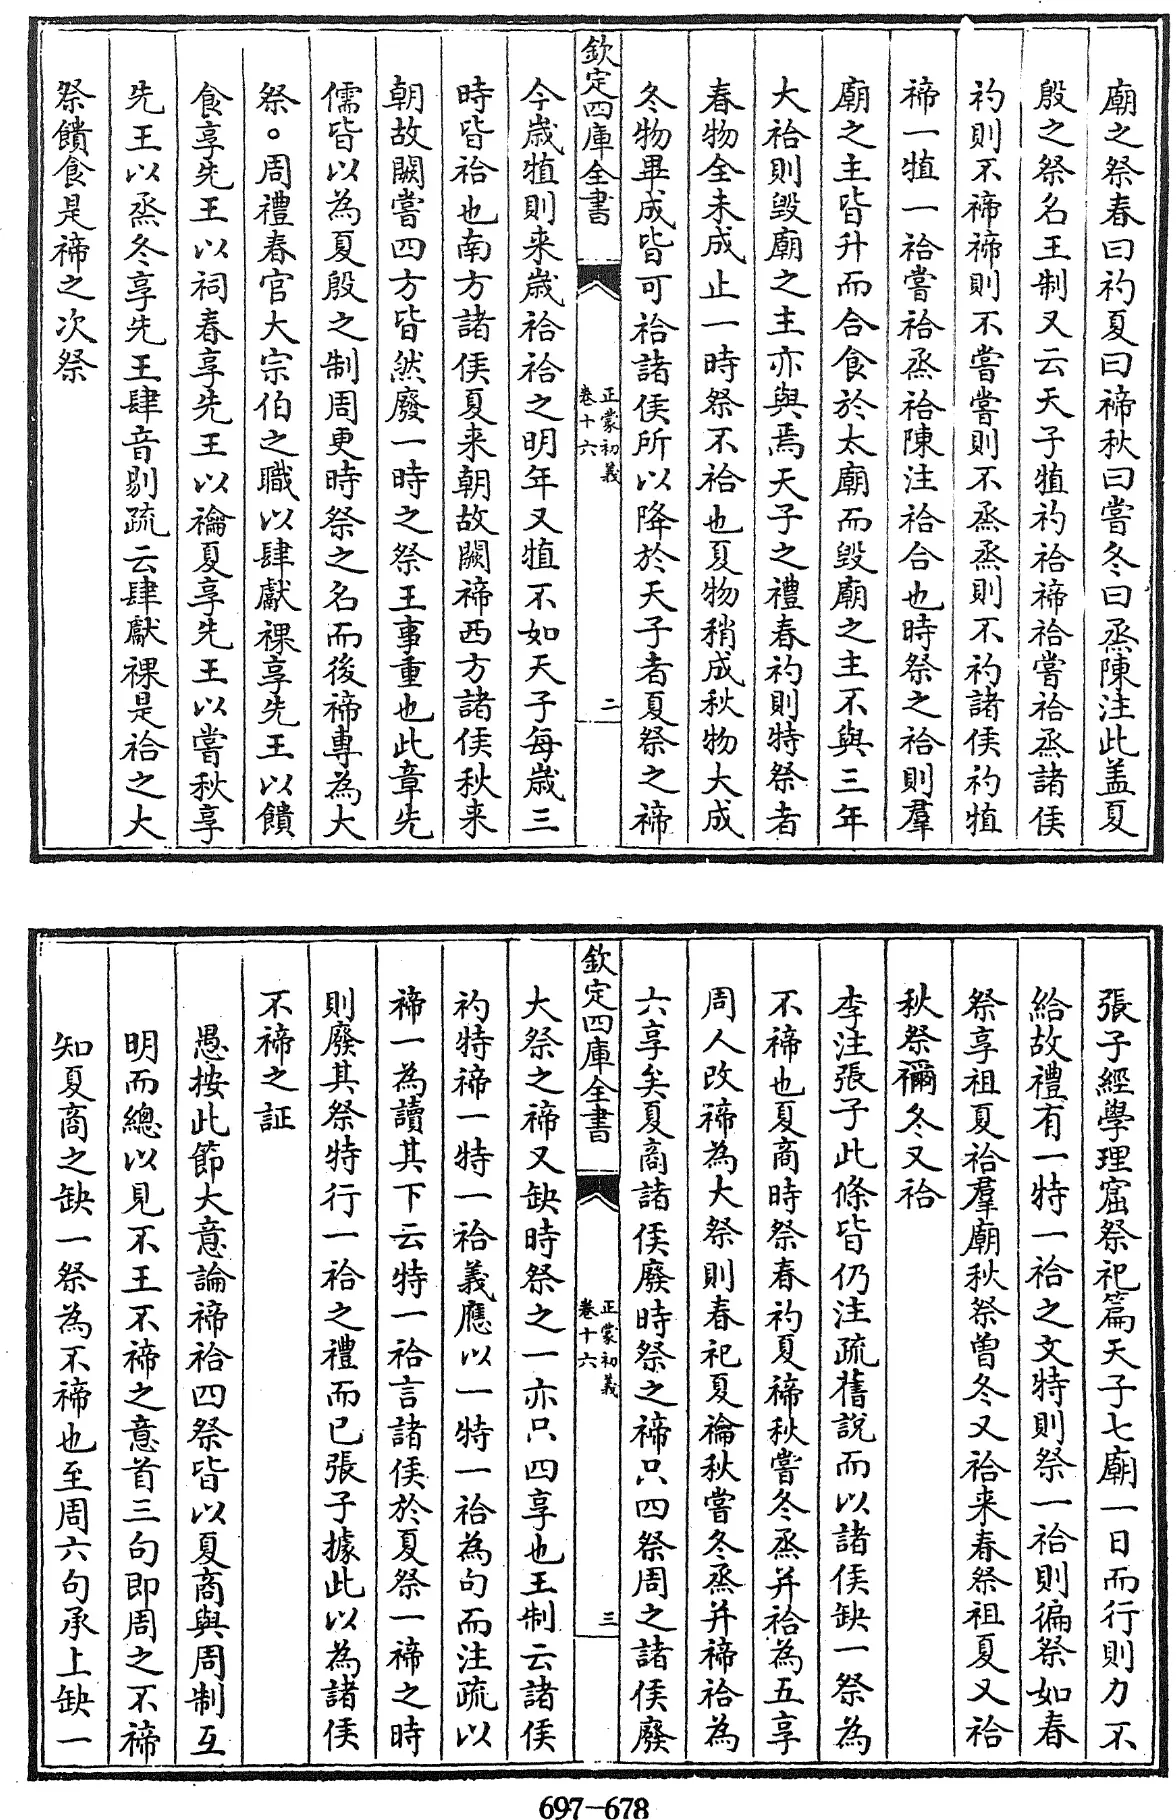 廟之祭春曰礿夏曰禘秋曰嘗冬曰烝陳注此盖夏
殷之祭名王制又云天子犆礿祫禘祫嘗祫烝諸侯
礿則不禘禘則不嘗嘗則不烝烝則不礿諸侯礿犆
禘一犆一祫嘗祫烝祫陳注祫合也時祭之祫則羣
廟之主皆升而合食於太廟而毀廟之主不與三年
大祫則毀廟之主亦與焉天子之禮春礿則特祭者
春物全未成止一時祭不祫也夏物稍成秋物大成
冬物畢成皆可祫諸侯所以降於天子者夏祭之禘
欽定四庫全書
正蒙初義
卷十六
二
今歲犆則来歲祫祫之明年又犆不如天子每歲三
時皆祫也南方諸侯夏来朝故闕禘西方諸侯秋来
朝故闕嘗四方皆然廢一時之祭王事重也此章先
儒皆以為夏殷之制周更時祭之名而後禘專為大
祭○周禮春官大宗伯之職以肆獻祼享先王以饋
食享先王以祠春享先王以禴夏享先王以嘗秋享
先王以烝冬享先王肆音剔疏云肆獻祼是祫之大
祭饋食是禘之次祭
張子經學理窟祭祀篇天子七廟一日而行則力不
給故禮有一特一祫之文特則祭一祫則徧祭如春
祭享祖夏祫羣廟秋祭曽冬又祫来春祭祖夏又祫
秋祭禰冬又祫
李注張子此條皆仍注疏舊說而以諸侯缺一祭為
不禘也夏商時祭春礿夏禘秋嘗冬烝并祫為五享
周人改禘為大祭則春祀夏禴秋嘗冬烝并禘祫為
六享矣夏商諸侯廢時祭之禘只四祭周之諸侯廢
欽定四庫全書
正蒙初義
卷十六
三
大祭之禘又缺時祭之一亦只四享也王制云諸侯
礿特禘一特一祫義應以一特一祫為句而注疏以
禘一為讀其下云特一祫言諸侯於夏祭一禘之時
則廢其祭特行一祫之禮而已張子據此以為諸侯
不禘之証
愚按此節大意論禘祫四祭皆以夏商與周制互
明而總以見不王不禘之意首三句即周之不禘
知夏商之缺一祭為不禘也至周六句承上缺一
697—678